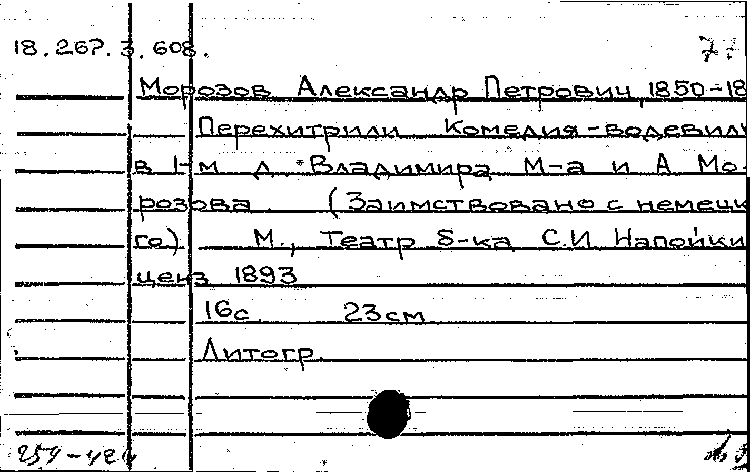 18.267.3.608.
Морозов Александр Петрович, 1850-18
Перехитрили Комедия-водевиль
в 1-м д. Владимира М-а и А Мо-
розова (Заимствовано с немецк
го) М., Театр б-ка С.И. Напойки
ценз 1893
16с. 23см
Литогр.